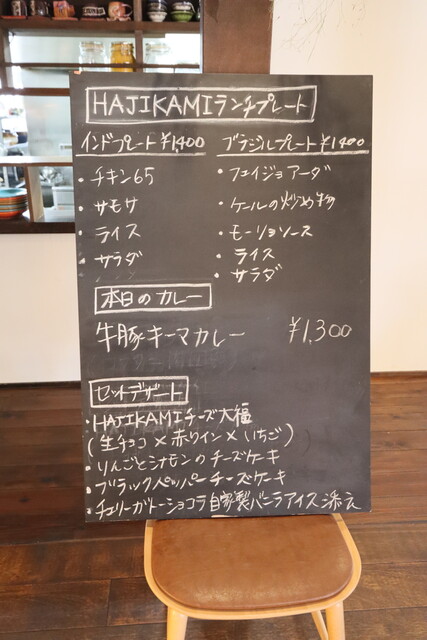 HAJIKAMIランチプレート
インドプレート ¥1,400
・チキン65
・サモサ
・ライス
・サラダ
ブラジルプレート ¥1400
・フェイジョアーダ
・ケールの炒め物
・モーリョソース
・ライス
・サラダ
本日のカレー
牛豚キーマカレー ¥1,300
セットデザート
・HAJIKAMIチーズ大福
(生チョコ×赤ワイン×いちご)
・りんごとシナモンのチーズケーキ
・ブラックペッパーチーズケーキ
・チェリーガトーショコラ自家製バニラアイス添え